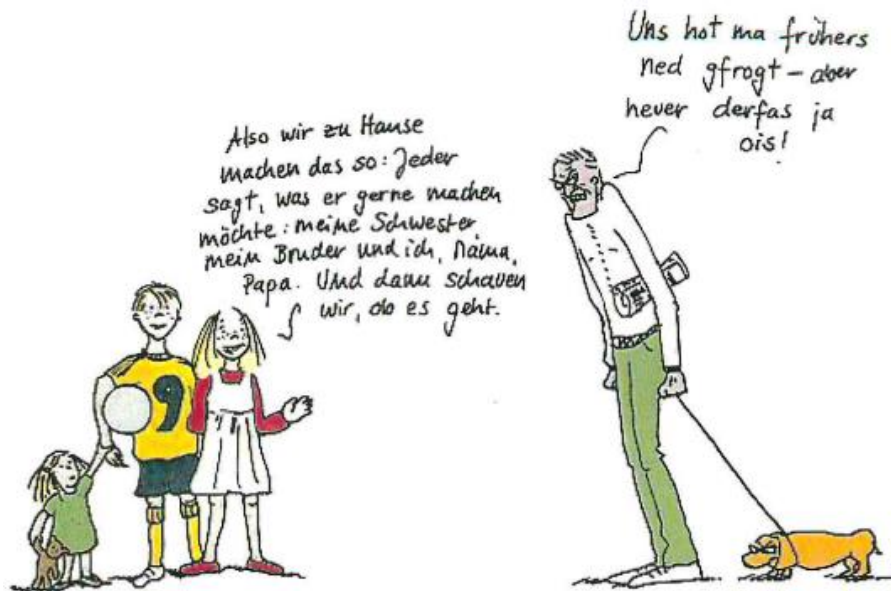 Also wir zu Hause
machen das so: Jeder
sagt, was er gerne machen
möchte: meine Schwester
mein Bruder und ich, Mama,
Papa. Und dann schauen
wir, ob es geht.
Uns hot ma frühers
ned gfrogt – aber
heuer derfas ja
ois!
9